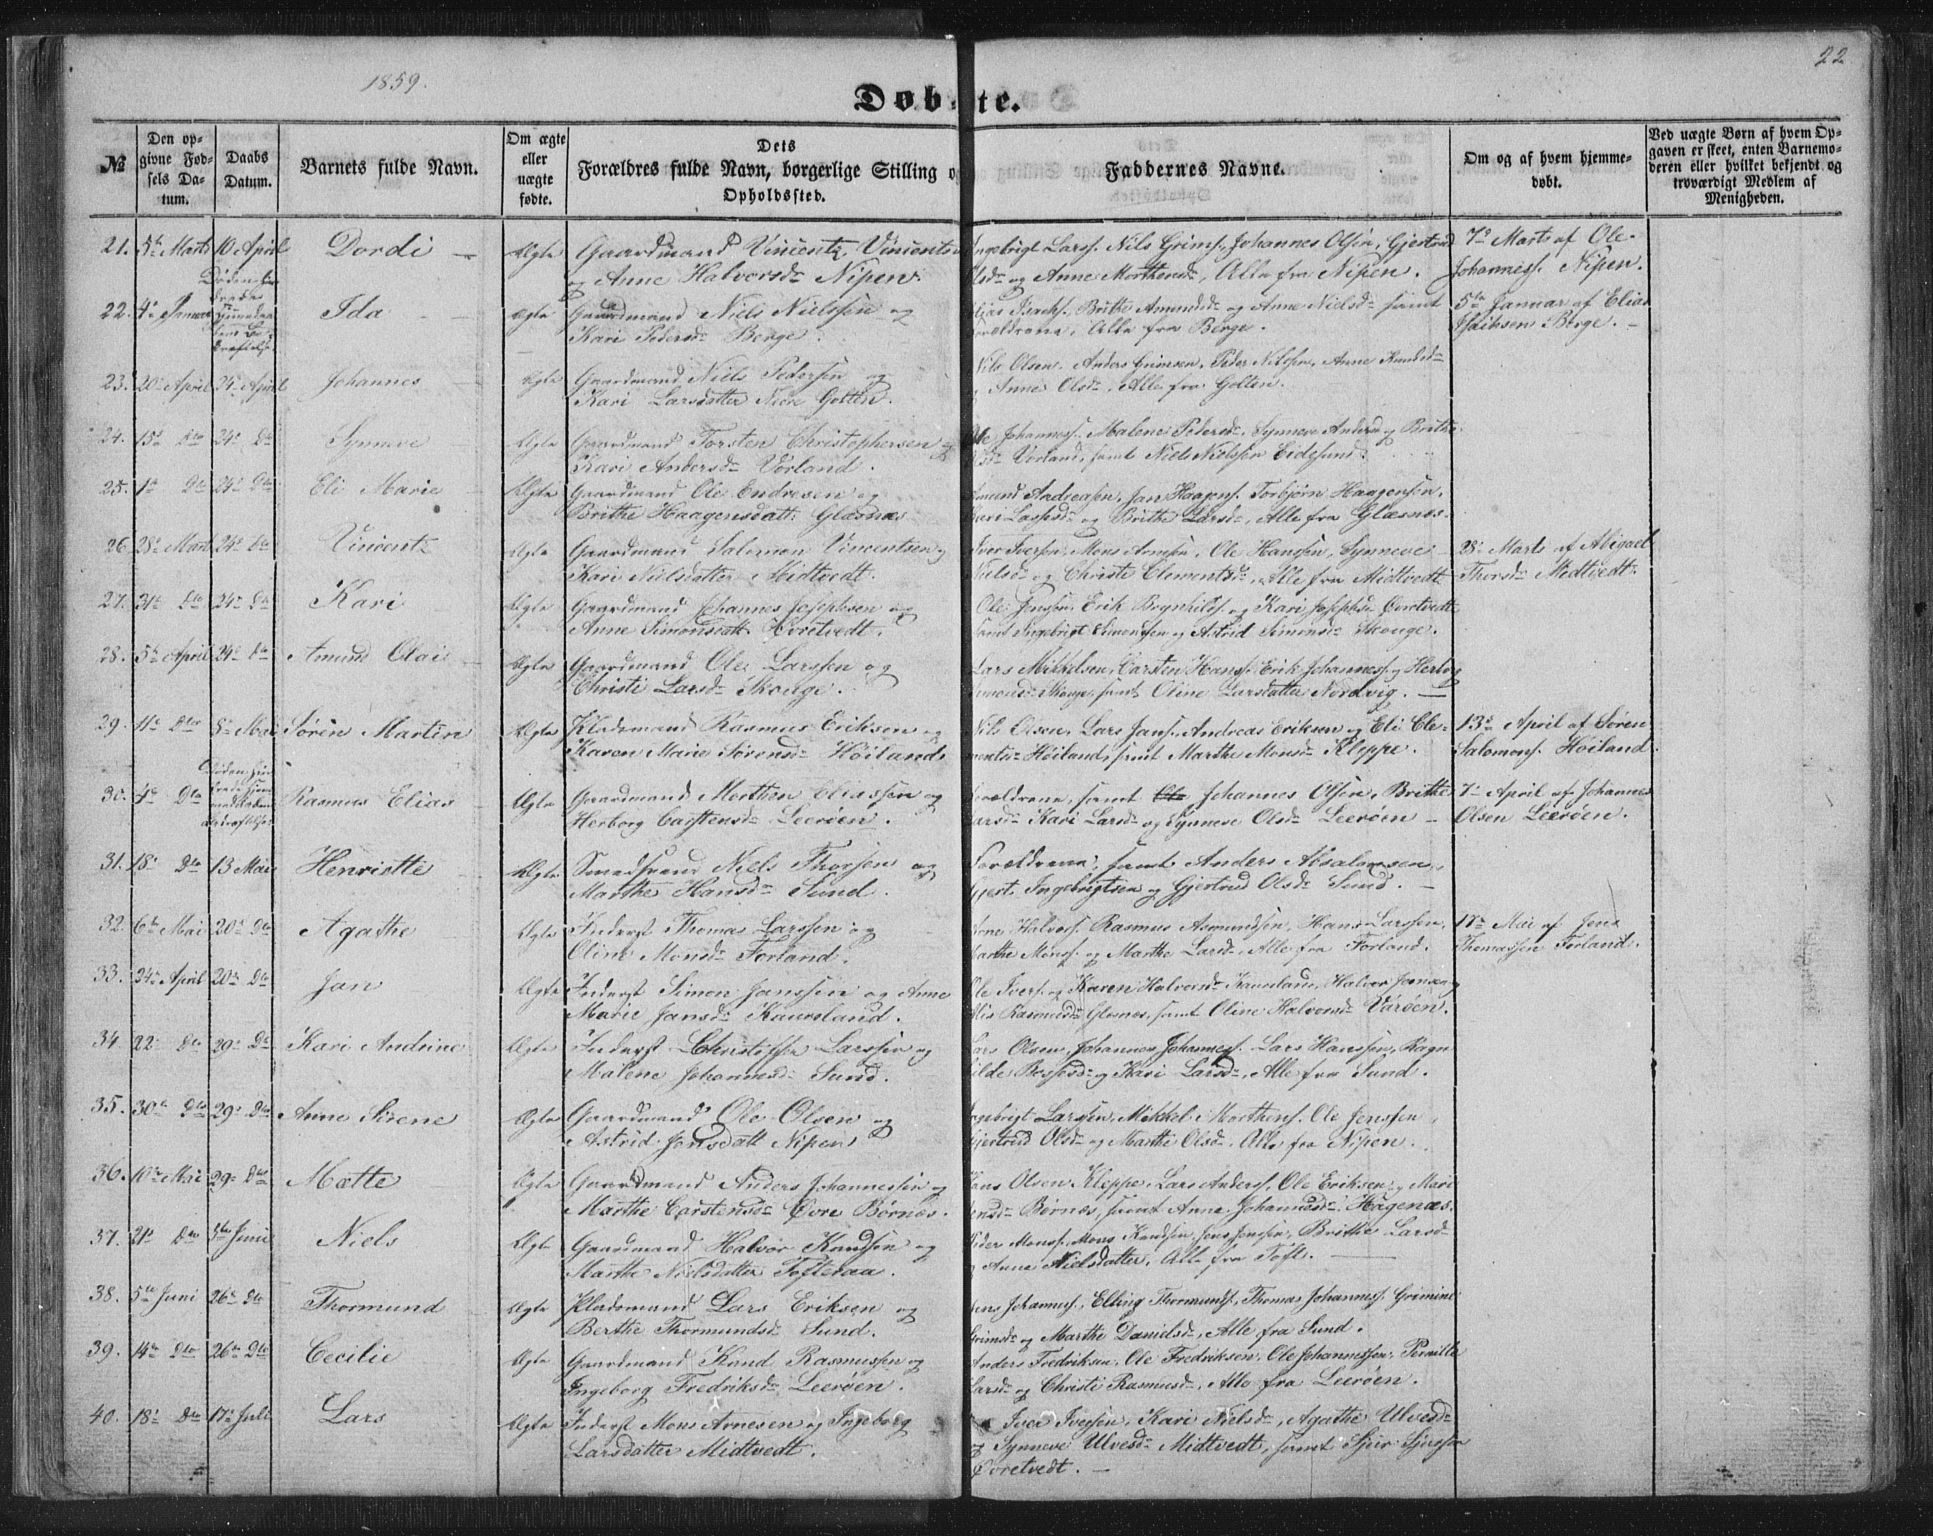 1859.
22
Døbte.
№
Den opgivne Fødsels Datum.
Daabs Datum.
Barnets fulde Navn.
Om ægte eller uægte fødte.
Dets Forældres fulde Navn, borgerlige Stilling og Opholdssted.
Faddernes Navne.
Om og af hvem hjemmedøbt.
Ved uægte Børn af hvem Opgaven er skeet, enten Barnemoderen eller hvilket bekjendt og troværdigt Medlem af Menigheden.
21. 5te Marts 10 April Dordi Ægte Gaardmand Vincentz Vincents
og Anne Halvorsdr Nipen.
Lars. Nils Grims. Johannes Olsen, Gjertrud
Olsdr og Anne Morthensdr, Alle fra Nipen.
7de Marts af Ole
Johanness. Nipen.
22. 4de Januar Ida Ægte Gaardmand Niels Nielssen og
Kari Pedersdr Berge.
Isachs. Brithe Amundsdr og Anne Nielsdr samt
Forældrene, Alle fra Berge.
5te Januar af Elias
Isachsen Berge.
23. 20de April 24de April Johannes Ægte Gaardmand Niels Pedersen og
Kari Larsdatter Golten.
Nils Olsen. Anders Grimsen, Peder Nilssen, Anne Knudsdr
Anne Olsdr, Alle fra Golten.
24. 15de Dto 24de Dto Synneve Ægte Gaardmand Torsten Christophersen og
Kari Andersdr Vorland.
Ole Johanness. Malene Pedersdr, Synneve Andersdr og Brithe
Olsdr Vorland, samt Niels Nielssen Eidesund.
25. 1ste Dto 24de Dto Eli Marie Ægte Gaardmand Ole Endresen og
Brithe Haagensdatt. Glæsnæs
Amund Andreasen, Jan Haagens. Torbjørn Haagensen,
Kari Lassesdr og Brithe Larsdr, Alle fra Glæsnæs.
26. 28de Marts 24de Dto Vincentz Ægte Gaardmand Salomon Vincentsen og
Kari Nielsdatter Midtvedt.
Iver Iversen, Mons Arnesen, Ole Hanssen, Synneve
Nielsdr og Christi Clementsdr, Alle fra Midtvedt
28de Marts af Abigael
Thorsdr Midtvedt.
27. 31te Dto 24de Dto Kari Ægte Gaardmand Johannes Josephsen og
Anne Simonsdatt. Øvretvedt.
Ole Jenssen, Erik Brynhilds. og Kari Josephsdr Øvretvedt
samt Ingebrigt Simonsen og Astrid Simonsdr Skouge.
28. 5te April 24de Dto Amund Olai Ægte Gaardmand Ole Larssen og
Christi Larsdr Skouge.
Lars Mikkelsen, Carsten Hans. Erik Johanness. og Herborg
Skouge, samt Oline Larsdatter Nordvig.
29. 11te Dto 8de Mai Søren Martin Ægte Pladsmand Rasmus Eriksen og
Karen Marie Sørensdr Høiland
Nils Olsen, Lars Jans. Andreas Eriksen og Eli Clementsdr
Høiland, samt Marthe Monsdr Kleppe.
13de April af Søren
Salomons. Høiland.
30. 4de Dto Rasmus Elias Ægte Gaardmand Morthen Eliassen og
Herborg Carstensdr Leerøen.
Forældrene, samt Johannes Olsen, Brithe
Larsdr Kari Larsdr og Synneve Olsdr Leerøen
7de April af Johannes
Olsen Leerøen.
31. 18de Dto 13 Mai Henriette Ægte Niels Thorsen og
Marthe Hansdr Sund.
Forældrene, samt Anders Absalonsen,
Gjert Ingebrigtsen og Gjertrud Olsdr Sund.
32. 6te Mai 20de Dto Agathe Ægte Inderst Thomas Larssen og
Oline Monsdr Forland.
Halvors. Rasmus Asmundsen, Hans Larssen,
Marthe Mons. og Marthe Larsdr, Alle fra Forland.
Mai af Jens
Thomassen Forland.
33. 24de April 20de Dto Jan Ægte Inderst Simon Janssen og Anne
Marie Jansdr Kausland.
Ole Ivers. og Karen Halvorsdr Kausland, Halvor Jonsen og
Rasmusdr Glesnæs, samt Oline Halvorsdr Varøen.
34. 22de Dto 29de Dto Kari Andrine Ægte Inderst Christopher Larssen og
Malene Johannesdr Sund.
Lars Olsen, Johannes Johanness. Lars Hanssen, Ragnilde
og Kari Larsdr, Alle fra Sund.
35. 30te Dto 29de Dto Anne Sirene Ægte Gaardmand Ole Olsen og
Astrid Jonsdatt Nipen
Ingebrigt Larssen, Mikkel Morthens. Ole Jenssen,
Gjertrud Olsdr og Marthe Olsdr, Alle fra Nipen.
36. 10de Mai 29de Dto Mætte Ægte Gaardmand Anders Johannessen og
Marthe Carstensdr Øvre Børnes.
Hans Olsen Kleppe, Lars Anders. Ole Eriksen og Mari
Børnæs, samt Anne Johannesdr Hagenæs.
37. 21de Dto 5te Juni Niels Ægte Gaardmand Halvor Knudsen og
Marthe Nielsdatter Tofteraa.
Peder Mons. Mons Knudsen, Jens Jenssen, Brithe Larsdr
og Anne Nielsdatter, Alle fra Toft.
38. 5te Juni 26de Dto Thormund Ægte Pladsmand Lars Eriksen og
Berthe Thormundsdr Sund.
Jens Johanness. Elling Thormunds. Thomas Johanness. Grimine
Grimsdr og Marthe Danielsdr, Alle fra Sund.
39. 14de Dto 26de Dto Cecilie Ægte Gaardmand Knud Rasmussen og
Ingeborg Fredriksdr Leerøen.
Anders Fredriksen, Ole Fredriksen, Ole Johannessen, Pernille
Larsdr og Christi Rasmusdr, Alle fra Leerøen.
40. 18de Dto 17de Juli Lars Ægte Inderst Mons Arnesen og Ingeborg
Larsdatter Midtvedt.
Iver Iversen, Kari Nielsdr, Agathe Ulvesdr
og Synneve Ulvesdr Midtvedt, samt Sjur Sjursen
Øvretvedt.